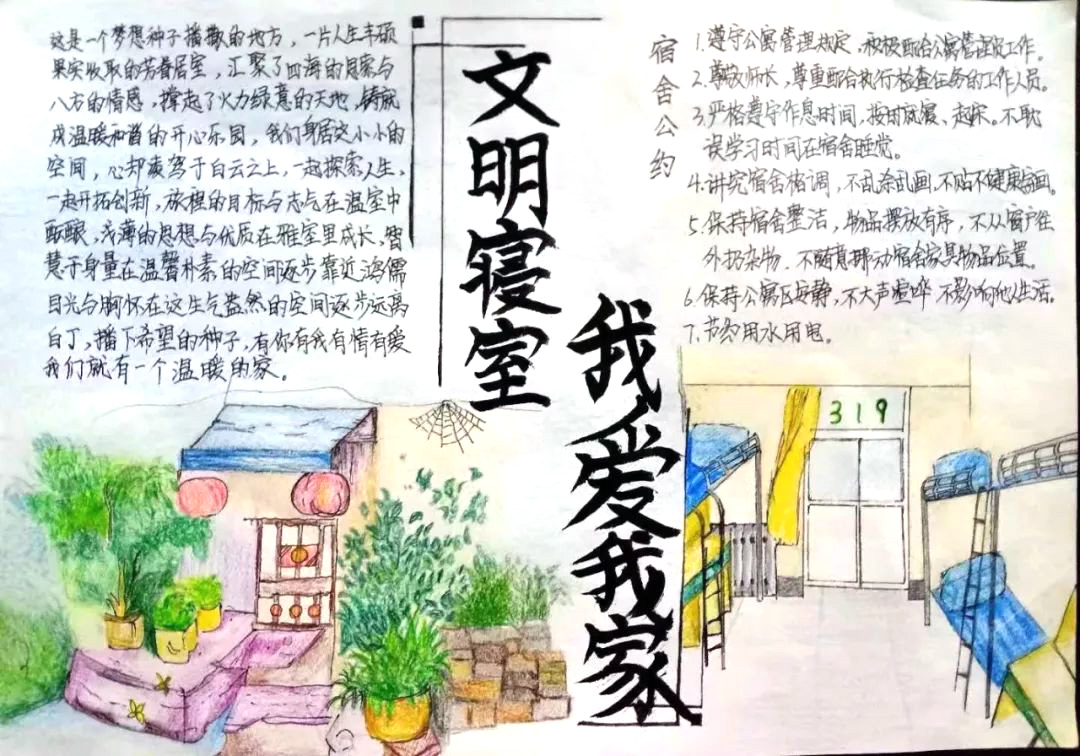 文明寝室
我爱我家
这是一个梦想种子播撒的地方，一片人生丰硕
果实收取的芳香居室，汇聚了四海的思索与
八方的情感，撑起了火力绿意的天地，铸就
成温暖和谐的开心乐园，我们身居这小小的
空间，心却乘驾于白云之上，一起探索人生，
一起开拓创新，旅程的目标与志气在温室中
酝酿，浅薄的思想与优质在雅室里成长，智
慧于身量在温馨朴素的空间逐步靠近鸿儒
目光与胸怀在这生气盎然的空间逐步远离
白丁，播下希望的种子，有你有我有情有爱
我们就有一个温暖的家。
宿舍公约
1.遵守公寓管理规定，积极配合公寓管理员工作。
2.尊敬师长，尊重配合执行检查任务的工作人员。
3.严格遵守作息时间，按时就寝、起床。不耽
误学习时间在宿舍睡觉。
4.讲究宿舍格调，不乱涂乱画，不贴不健康画。
5.保持宿舍整洁，物品摆放有序，不从窗户往
外扔杂物，不随意挪动宿舍家具物品位置。
6.保持公寓区安静，不大声喧哗，不影响他人生活。
7.节约用水用电。
319